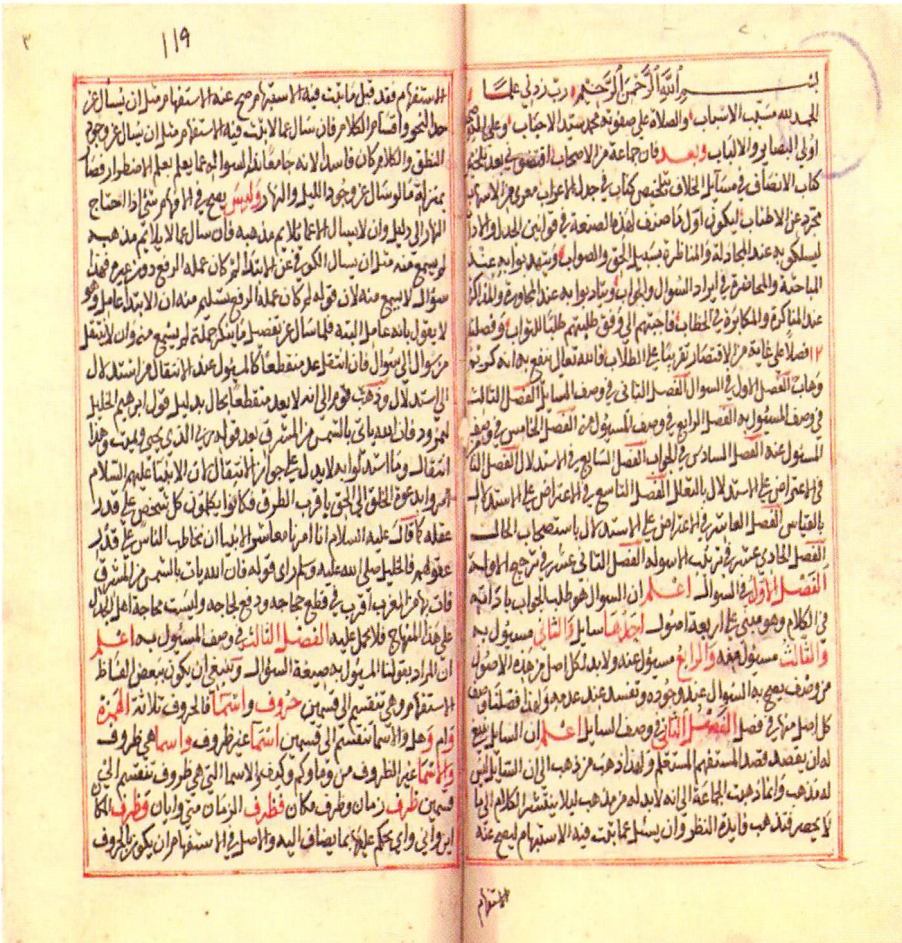 بسم الله الرحمن الرحيم رب زدني علما
الحمد لله مسبب الاسباب والصلاة على صفوته محمد سيد الاحباب وعلى
اولى البصاير والالباب وبعد فان جماعة من الاصحاب اقتضوني بعد تلخيص
كتاب الانصاف في مسايل الخلاف تلخيص كتاب في جدل الاعراب معرى من الاسهاب
مجرد عن الاطناب ليكون اول ما صنف لهذه الصنعة في قوانين الجدل والاداب
ليسلكوا به عند المجادلة والمناظرة سبيل الحق والصواب ويتهدبوا به عند
المباحثة والمحاضرة في ايراد السوال والجواب ويتادبوا به عند المحاورة والمذاكرة
عند المناكرة والمكابرة في الخطاب فاجبتهم الى وفق طلبتهم طلبا للثواب وفصلته
١٢ فصلا على غاية من الاقتصار تقريبا على الطلاب فالله تعالى ينفع به انه كريم
وهاب الفصل الاول في السوال الفصل الثاني في وصف السايل الفصل الثالث
في وصف المسئول به الفصل الرابع في وصف المسئول منه الفصل الخامس في وصف
المسئول عنه الفصل السادس في الجواب الفصل السابع في الاستدلال الفصل الثامن
في الاعتراض على الاستدلال بالنقل الفصل التاسع في الاعتراض على الاستدلال
بالقياس الفصل العاشر في الاعتراض على الاستدلال باستصحاب الحال
الفصل الحادي عشر في ترتيب الاسوله الفصل الثاني عشر في ترجيح الادلة
الفصل الاول في السوال اعلم ان السوال هو طلب الجواب باداته
في الكلام وهو مبنى على اربعة اصول احدها سايل والثاني مسئول به
والثالث مسئول منه والرابع مسئول عنه ولابد لكل اصل من هذه الاصول
من وصف يصح به السوال عند وجوده وتفسد عند عدمه ولهذا فصلنا وصف
كل اصل منها في فصل الفصل الثاني في وصف السايل اعلم ان السايل ينبغي
له ان يقصد قصد المستفهم المستعلم ولهذا ذهب من ذهب الى ان السايل ليس
له مذهب وانما ذهبت الجماعة الى انه لابد له من مذهب ليلا ينتشر الكلام الى ما
لا يحصر فتذهب فايدة النظر وان يسئل عما يثبت فيه الاستبهام ليصح عنه
الاستفهام
١١٩
٣
الاستفهام فقد قيل ما ثبت فيه الاستبهام صح عنه الاستفهام مثل ان يسأل عن
حد النحو واقسام الكلام فان سال عما لا يثبت فيه الاستفهام مثل ان يسال عن وجود
النطق والكلام كان فاسدا لانه جا معاندا في السوال عما يعلم بعلم الاضطرار فصار
بمنزلة مالو سال عن وجود الليل والنهار وليس يصح في الافهام شي اذا احتاج
النهار الى دليل وان لا يسال الا عما يلايم مذهبه فان سال عما لا يلايم مذهبه
لم يسمع منه مثل ان يسال الكوفي عن الابتدا لم كان عمله الرفع دون غيره فهذا
سؤال لا يسمع منه لان قوله لم كان عمله الرفع تسليم منه ان الابتدا عامل وهو
لا يقول بانه عامل البته فلما سال عن تفصيل ما ينكر جمله لم يسمع منه وان لا ينتقل
من سوال الى سوال فان انتقل عد منقطعا كالمسئول عند الانتقال من استدلال
الى استدلال وذهب قوم الى انه لا يعد منقطعا بحال بدليل قول ابرهيم الخليل
لنمرود فان الله ياتي بالشمس من المشرق بعد قوله ربي الذي يحيي ويميت وهذا
انتقال وما استدلوا به لا يدل على جواز الانتقال لان الانبيا عليهم السلام
امروا بدعوة الخلق الى الحق باقرب الطرق فكانوا يكلمون كل شخص على قدر
عقله كما قال عليه السلام انا امرنا معاشر الانبيا ان نخاطب الناس على قدر
عقولهم فالخليل صلى الله عليه وسلم راى قوله فان الله يات بالشمس من المشرق
فات بها من المغرب اقرب في قطع حجاجه ودفع لجاجه وليست محاجة اهل الجدل
على هذا المنهاج فلا يحمل عليه الفصل الثالث في وصف المسئول به اعلم
ان المراد بقولنا المسئول به صيغة السوال وينبغي ان يكون ببعض الفاظ
الاستفهام وهي تنقسم الى قسمين حروف واسما فالحروف ثلاثة الهمزة
وام وهل والاسما تنقسم الى قسمين اسما غير ظروف واسما هي ظروف
والاسما غير الظروف من وما وكم وكيف والاسما التي هي ظروف تنقسم الى
قسمين ظرف زمان وظرف مكان فظرف الزمان متى وايان وظرف المكان
اين وانى واي يحكم عليها بما يضاف اليه والاصل في الاستفهام ان يكون بالحروف